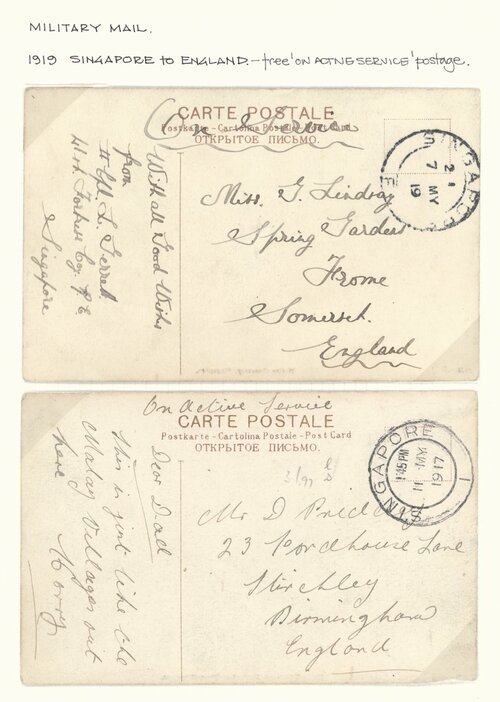 MILITARY MAIL.
1919 SINGAPORE to ENGLAND. – free 'ON ACTIVE SERVICE' postage.
CARTE POSTALE
On A Service
Postkarte - Cartolina Postale - Post Card
ОТКРЫТОЕ ПИСЬМО.
With all Good Wishes
from
Cpl L.
Fortress Coy. R.E.
Singapore
Miss. G. Lindsay
Spring Gardens
Frome
Somerset.
England
SINGAPORE
21
7 MY
19
On Active Service
CARTE POSTALE
Postkarte - Cartolina Postale - Post Card
ОТКРЫТОЕ ПИСЬМО.
Dear Dad
This is just like the
Malay Villages out
here
Harry
Mr D
23 Lane
Stirchley
Birmingham
England
SINGAPORE
1
1.45 PM
11
1917